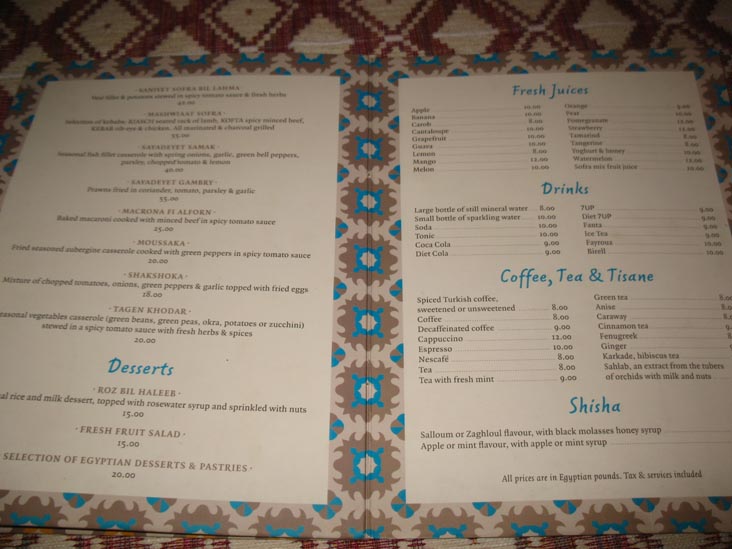 · SANIYET SOFRA BIL LAHMA ·
Veal fillet & potatoes stewed in spicy tomato sauce & fresh herbs
42.00
· MASHWIAAT SOFRA ·
Selection of kebabs, seared rack of lamb, KOFTA spicy minced beef,
KEBAB rib-eye & chicken. All marinated & charcoal grilled
55.00
· SAYADEYET SAMAK ·
Seasonal fish fillet casserole with spring onions, garlic, green bell peppers,
parsley, chopped tomato & lemon
40.00
· SAYADEYET GAMBRY ·
Prawns fried in coriander, tomato, parsley & garlic
55.00
· MACRONA FI ALFORN ·
Baked macaroni cooked with minced beef in spicy tomato sauce
25.00
· MOUSSAKA ·
Fried seasoned aubergine casserole cooked with green peppers in spicy tomato sauce
20.00
· SHAKSHOKA ·
Mixture of chopped tomatoes, onions, green peppers & garlic topped with fried eggs
18.00
· TAGEN KHODAR ·
easonal vegetables casserole (green beans, green peas, okra, potatoes or zucchini)
stewed in a spicy tomato sauce with fresh herbs & spices
20.00
Desserts
· ROZ BIL HALEEB ·
al rice and milk dessert, topped with rosewater syrup and sprinkled with nuts
15.00
· FRESH FRUIT SALAD ·
15.00
SELECTION OF EGYPTIAN DESSERTS & PASTRIES ·
20.00
Fresh Juices
Apple 10.00
Banana 10.00
Carob 8.00
Cantaloupe 10.00
Grapefruit 10.00
Guava 10.00
Lemon 8.00
Mango 12.00
Melon 10.00
Orange 9.00
Pear 10.00
Pomegranate 12.00
Strawberry 12.00
Tamarind 8.00
Tangerine 8.00
Yoghurt & honey 10.00
Watermelon 12.00
Sofra mix fruit juice 10.00
Drinks
Large bottle of still mineral water 8.00
Small bottle of sparkling water 10.00
Soda 10.00
Tonic 10.00
Coca Cola 9.00
Diet Cola 9.00
7UP 9.00
Diet 7UP 9.00
Fanta 9.00
Ice Tea 9.00
Fayrouz 10.00
Birell 10.00
Coffee, Tea & Tisane
Spiced Turkish coffee,
sweetened or unsweetened 8.00
Coffee 8.00
Decaffeinated coffee 9.00
Cappuccino 12.00
Espresso 10.00
Nescafé 8.00
Tea 8.00
Tea with fresh mint 9.00
Green tea 8.00
Anise 8.00
Caraway 8.00
Cinnamon tea
Fenugreek
Ginger
Karkade, hibiscus tea
Sahlab, an extract from the tubers
of orchids with milk and nuts
Shisha
Salloum or Zaghloul flavour, with black molasses honey syrup
Apple or mint flavour, with apple or mint syrup
All prices are in Egyptian pounds. Tax & services included